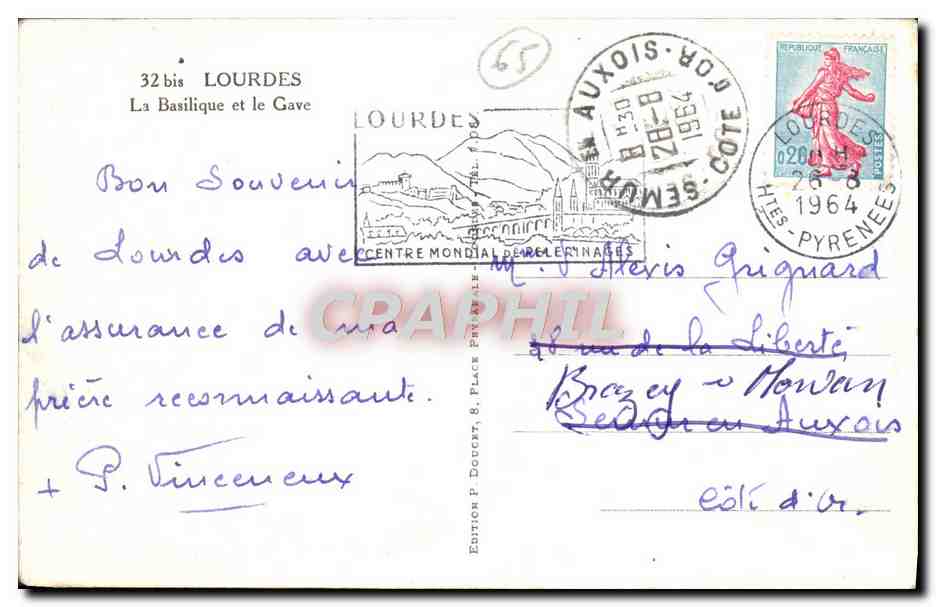 32 bis LOURDES
La Basilique et le Gave
65
LOURDES
CENTRE MONDIAL DE PELERINAGES
SEMUR EN AUXOIS · COTE D'OR
8 H30
28-8
1964
REPUBLIQUE FRANÇAISE
0,20
POSTES
LOURDES
26-8
1964
HTES-PYRENEES
Bon Souvenir
de Lourdes avec
l'assurance de ma
prière reconnaissante.
+ P. Vinceneux
EDITION P. DOUCET, 8, PLACE PEYRAMALE
Alexis Grignard
48 rue de la Liberté
Brazey en Morvan
Semur en Auxois
Côte d'Or.
CRAPHIL